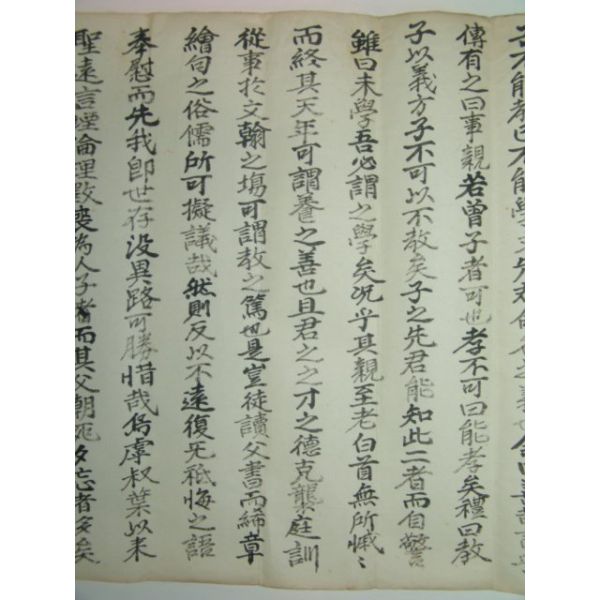 傳有之曰事親若曾子者可也孝不可曰能孝矣禮曰教
子以義方子不可以不教矣子之先君能知此二者而自警
雖曰未學吾必謂之學矣況乎其親至老白首無所憾
而終其天年可謂養之善也且君之之才之德克襲庭訓
從事於文翰之場可謂教之篤也是豈徒讀父書而絺章
繪句之俗儒所可擬議哉然則反以不遠復旡祗悔之語
奉慰而先我卽世存沒異路可勝惜哉烏虖叔葉以來
聖遠言湮倫理斁喪為人子者而其父朝死夕忘者多矣